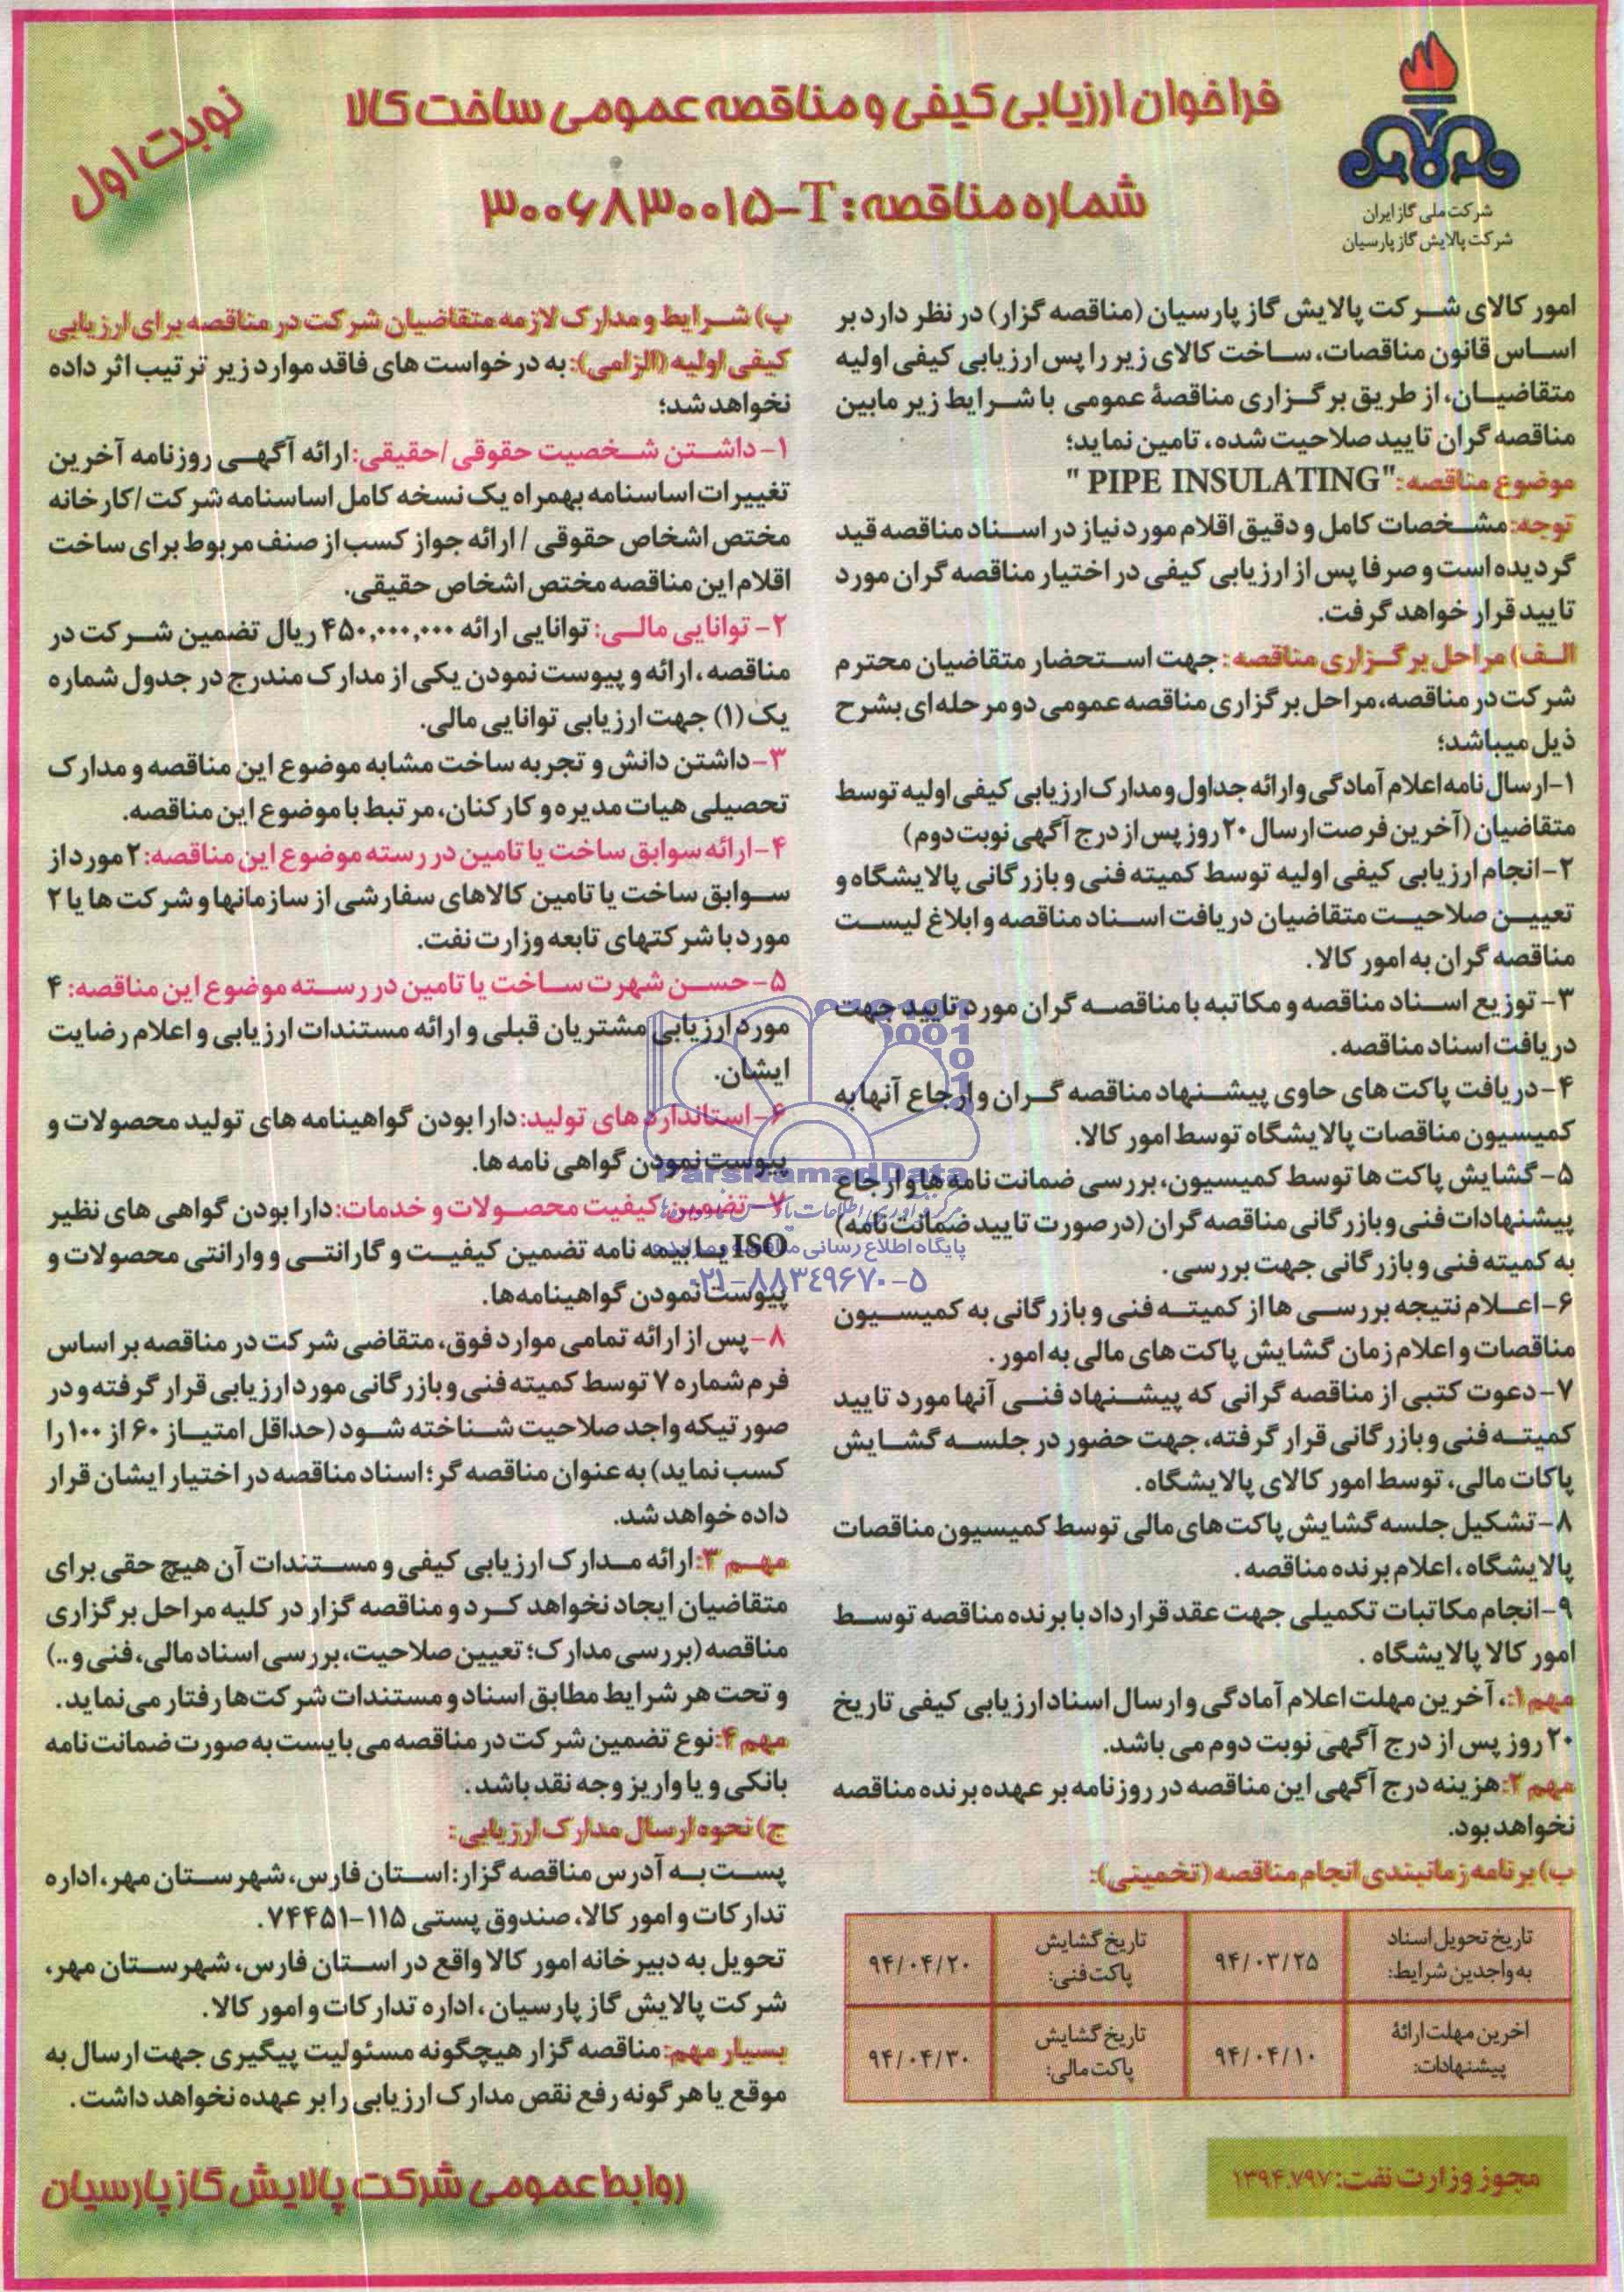 فراخوان ارزیابی کیفی و مناقصه عمومی ساخت کالا
شماره مناقصه: T-۳۰۰۶۸۳۰۰۱۵
نوبت اول
شرکت ملی گاز ایران
شرکت پالایش گاز پارسیان
امور کالای شرکت پالایش گاز پارسیان (مناقصه گزار) در نظر دارد بر
اساس قانون مناقصات، ساخت کالای زیر را پس ارزیابی کیفی اولیه
متقاضیان، از طریق برگزاری مناقصهٔ عمومی با شرایط زیر مابین
مناقصه گران تایید صلاحیت شده، تامین نماید؛
موضوع مناقصه: "PIPE INSULATING "
توجه: مشخصات کامل و دقیق اقلام مورد نیاز در اسناد مناقصه قید
گردیده است و صرفا پس از ارزیابی کیفی در اختیار مناقصه گران مورد
تایید قرار خواهد گرفت.
الف) مراحل برگزاری مناقصه: جهت استحضار متقاضیان محترم
شرکت در مناقصه، مراحل برگزاری مناقصه عمومی دو مرحله ای بشرح
ذیل میباشد؛
۱-ارسال نامه اعلام آمادگی و ارائه جداول و مدارک ارزیابی کیفی اولیه توسط
متقاضیان (آخرین فرصت ارسال ۲۰ روز پس از درج آگهی نوبت دوم)
۲-انجام ارزیابی کیفی اولیه توسط کمیته فنی و بازرگانی پالایشگاه و
تعیین صلاحیت متقاضیان دریافت اسناد مناقصه و ابلاغ لیست
مناقصه گران به امور کالا.
۳- توزیع اسناد مناقصه و مکاتبه با مناقصه گران مورد تایید جهت
دریافت اسناد مناقصه.
۴-دریافت پاکت های حاوی پیشنهاد مناقصه گران و ارجاع آنها به
کمیسیون مناقصات پالایشگاه توسط امور کالا.
۵-گشایش پاکت ها توسط کمیسیون، بررسی ضمانت نامه ها و ارجاع
پیشنهادات فنی و بازرگانی مناقصه گران (در صورت تایید ضمانت نامه)
به کمیته فنی و بازرگانی جهت بررسی.
۶-اعلام نتیجه بررسی ها از کمیته فنی و بازرگانی به کمیسیون
مناقصات و اعلام زمان گشایش پاکت های مالی به امور.
۷-دعوت کتبی از مناقصه گرانی که پیشنهاد فنی آنها مورد تایید
کمیته فنی و بازرگانی قرار گرفته، جهت حضور در جلسه گشایش
پاکات مالی، توسط امور کالای پالایشگاه.
۸-تشکیل جلسه گشایش پاکت های مالی توسط کمیسیون مناقصات
پالایشگاه، اعلام برنده مناقصه.
۹-انجام مکاتبات تکمیلی جهت عقد قرارداد با برنده مناقصه توسط
امور کالا پالایشگاه .
مهم ۱: ، آخرین مهلت اعلام آمادگی و ارسال اسناد ارزیابی کیفی تاریخ
۲۰ روز پس از درج آگهی نوبت دوم می باشد.
مهم ۲: هزینه درج آگهی این مناقصه در روزنامه بر عهده برنده مناقصه
نخواهد بود.
ب) برنامه زمانبندی انجام مناقصه (تخمینی):
تاریخ تحویل اسناد به واجدین شرایط: ۹۴/۰۳/۲۵ تاریخ گشایش پاکت فنی: ۹۴/۰۴/۲۰
آخرین مهلت ارائهٔ پیشنهادات: ۹۴/۰۴/۱۰ تاریخ گشایش پاکت مالی: ۹۴/۰۴/۳۰
مجوز وزارت نفت: ۱۳۹۴.۷۹۷
پ) شرایط و مدارک لازمه متقاضیان شرکت در مناقصه برای ارزیابی
کیفی اولیه (الزامی): به درخواست های فاقد موارد زیر ترتیب اثر داده
نخواهد شد؛
۱- داشتن شخصیت حقوقی/حقیقی: ارائه آگهی روزنامه آخرین
تغییرات اساسنامه بهمراه یک نسخه کامل اساسنامه شرکت/کارخانه
مختص اشخاص حقوقی / ارائه جواز کسب از صنف مربوط برای ساخت
اقلام این مناقصه مختص اشخاص حقیقی.
۲- توانایی مالی: توانایی ارائه ۴۵۰,۰۰۰,۰۰۰ ریال تضمین شرکت در
مناقصه، ارائه و پیوست نمودن یکی از مدارک مندرج در جدول شماره
یک (۱) جهت ارزیابی توانایی مالی.
۳-داشتن دانش و تجربه ساخت مشابه موضوع این مناقصه و مدارک
تحصیلی هیات مدیره و کارکنان، مرتبط با موضوع این مناقصه.
۴-ارائه سوابق ساخت یا تامین در رسته موضوع این مناقصه: ۲ مورد از
سوابق ساخت یا تامین کالاهای سفارشی از سازمانها و شرکت ها یا ۲
مورد با شرکتهای تابعه وزارت نفت.
۵- حسن شهرت ساخت یا تامین در رسته موضوع این مناقصه: ۴
مورد ارزیابی مشتریان قبلی و ارائه مستندات ارزیابی و اعلام رضایت
ایشان.
۶-استانداردهای تولید: دارا بودن گواهینامه های تولید محصولات و
پیوست نمودن گواهی نامه ها.
۷- تضمین کیفیت محصولات و خدمات: دارا بودن گواهی های نظیر
ISO یا بیمه نامه تضمین کیفیت و گارانتی و وارانتی محصولات و
پیوست نمودن گواهینامه‌ها.
۸-پس از ارائه تمامی موارد فوق، متقاضی شرکت در مناقصه بر اساس
فرم شماره ۷ توسط کمیته فنی و بازرگانی مورد ارزیابی قرار گرفته و در
صورتیکه واجد صلاحیت شناخته شود (حداقل امتیاز ۶۰ از ۱۰۰ را
کسب نماید) به عنوان مناقصه گر؛ اسناد مناقصه در اختیار ایشان قرار
داده خواهد شد.
مهم ۳: ارائه مدارک ارزیابی کیفی و مستندات آن هیچ حقی برای
متقاضیان ایجاد نخواهد کرد و مناقصه گزار در کلیه مراحل برگزاری
مناقصه (بررسی مدارک؛ تعیین صلاحیت، بررسی اسناد مالی، فنی و..)
و تحت هر شرایط مطابق اسناد و مستندات شرکت‌ها رفتار می‌نماید.
مهم ۴: نوع تضمین شرکت در مناقصه می بایست به صورت ضمانت نامه
بانکی و یا واریز وجه نقد باشد.
ج) نحوه ارسال مدارک ارزیابی:
پست به آدرس مناقصه گزار: استان فارس، شهرستان مهر، اداره
تدارکات و امور کالا، صندوق پستی ۱۱۵-۷۴۴۵۱.
تحویل به دبیرخانه امور کالا واقع در استان فارس، شهرستان مهر،
شرکت پالایش گاز پارسیان، اداره تدارکات و امور کالا.
بسیار مهم: مناقصه گزار هیچگونه مسئولیت پیگیری جهت ارسال به
موقع یا هرگونه رفع نقص مدارک ارزیابی را بر عهده نخواهد داشت.
روابط عمومی شرکت پالایش گاز پارسیان
ParsNamadData
پایگاه اطلاع رسانی مناقصه و مزایده
۰۲۱-۸۸۳۴۹۶۷۰-۵